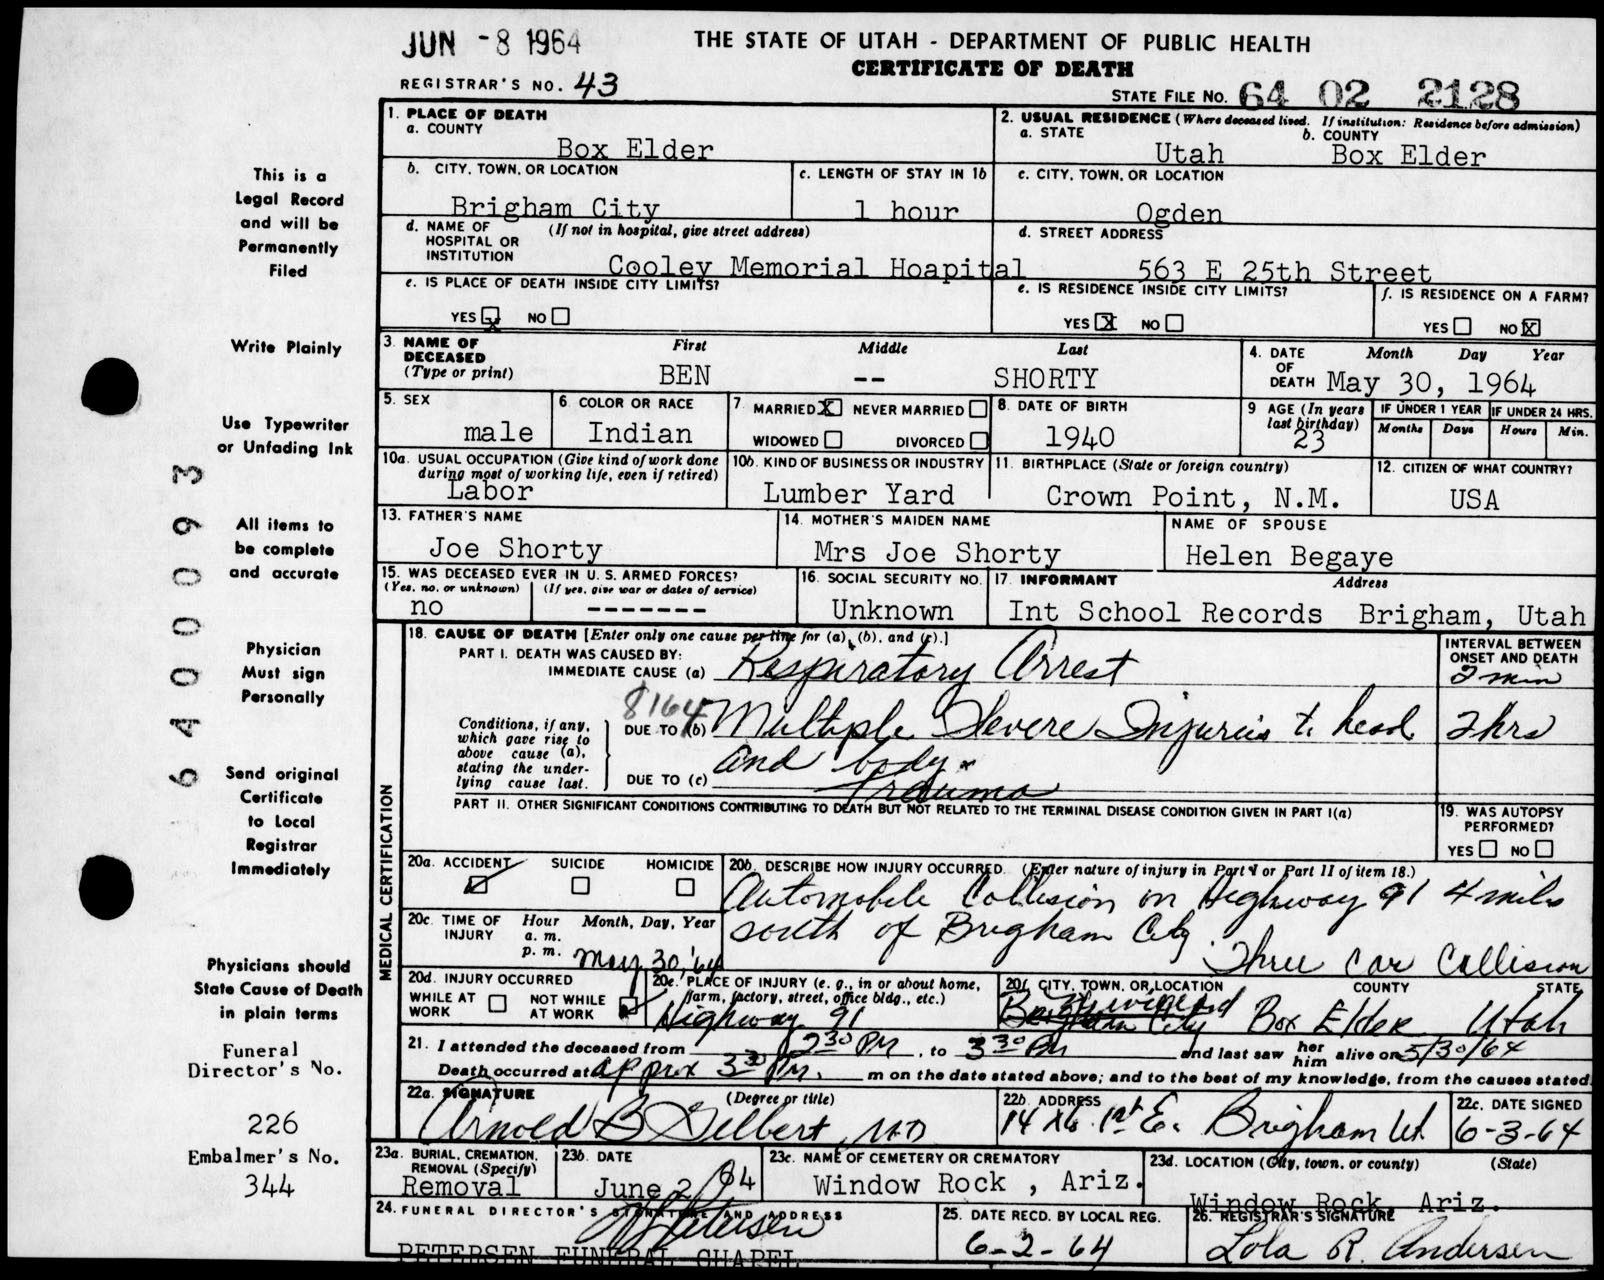 JUN -8 1964
THE STATE OF UTAH - DEPARTMENT OF PUBLIC HEALTH
CERTIFICATE OF DEATH
REGISTRAR'S NO. 43
STATE FILE NO. 64 02 2128
This is a
Legal Record
and will be
Permanently
Filed
Write Plainly
Use Typewriter
or Unfading Ink
All items to
be complete
and accurate
Physician
Must sign
Personally
Send original
Certificate
to Local
Registrar
Immediately
Physicians should
State Cause of Death
in plain terms
Funeral
Director's No.
226
Embalmer's No.
344
6400093
1. PLACE OF DEATH
a. COUNTY
Box Elder
2. USUAL RESIDENCE (Where deceased lived. If institution: Residence before admission)
a. STATE b. COUNTY
Utah Box Elder
b. CITY, TOWN, OR LOCATION
Brigham City
c. LENGTH OF STAY IN 1b
1 hour
c. CITY, TOWN, OR LOCATION
Ogden
d. NAME OF HOSPITAL OR INSTITUTION (If not in hospital, give street address)
Cooley Memorial Hoapital
d. STREET ADDRESS
563 E 25th Street
e. IS PLACE OF DEATH INSIDE CITY LIMITS?
YES X NO
e. IS RESIDENCE INSIDE CITY LIMITS?
YES X NO
f. IS RESIDENCE ON A FARM?
YES NO X
3. NAME OF DECEASED (Type or print)
First Middle Last
BEN -- SHORTY
4. DATE OF DEATH Month Day Year
May 30, 1964
5. SEX
male
6. COLOR OR RACE
Indian
7. MARRIED X NEVER MARRIED
WIDOWED DIVORCED
8. DATE OF BIRTH
1940
9 AGE (In years last birthday)
23
IF UNDER 1 YEAR IF UNDER 24 HRS.
Months Days Hours Min.
10a. USUAL OCCUPATION (Give kind of work done during most of working life, even if retired)
Labor
10b. KIND OF BUSINESS OR INDUSTRY
Lumber Yard
11. BIRTHPLACE (State or foreign country)
Crown Point, N.M.
12. CITIZEN OF WHAT COUNTRY?
USA
13. FATHER'S NAME
Joe Shorty
14. MOTHER'S MAIDEN NAME
Mrs Joe Shorty
NAME OF SPOUSE
Helen Begaye
15. WAS DECEASED EVER IN U.S. ARMED FORCES?
(Yes, no, or unknown) (If yes, give war or dates of service)
no -------
16. SOCIAL SECURITY NO.
Unknown
17. INFORMANT Address
Int School Records Brigham, Utah
18. CAUSE OF DEATH [Enter only one cause per line for (a), (b), and (c).]
PART I. DEATH WAS CAUSED BY:
IMMEDIATE CAUSE (a) Respiratory Arrest
INTERVAL BETWEEN ONSET AND DEATH
2 min
8164
Conditions, if any, which gave rise to above cause (a), stating the underlying cause last.
DUE TO (b) Multiple Severe Injuries to head
2 hrs
and body.
DUE TO (c) Trauma
PART II. OTHER SIGNIFICANT CONDITIONS CONTRIBUTING TO DEATH BUT NOT RELATED TO THE TERMINAL DISEASE CONDITION GIVEN IN PART I(a)
19. WAS AUTOPSY PERFORMED?
YES NO
MEDICAL CERTIFICATION
20a. ACCIDENT SUICIDE HOMICIDE
20b. DESCRIBE HOW INJURY OCCURRED. (Enter nature of injury in Part I or Part II of item 18.)
Automobile Collision on Highway 91 4 miles
south of Brigham City. Three Car Collision
20c. TIME OF INJURY Hour Month, Day, Year
a. m.
p. m. May 30, '64
20d. INJURY OCCURRED
WHILE AT WORK NOT WHILE AT WORK
20e. PLACE OF INJURY (e. g., in or about home, farm, factory, street, office bldg., etc.)
Highway 91
20f. CITY, TOWN, OR LOCATION COUNTY STATE
Brigham City Box Elder Utah
21. I attended the deceased from 2 30 PM, to 3 30 PM and last saw her him alive on 5/30/64
Death occurred at approx 3 30 PM. m on the date stated above; and to the best of my knowledge, from the causes stated.
22a. SIGNATURE (Degree or title)
Arnold B Gilbert, MD
22b. ADDRESS
1st E. Brigham Ut
22c. DATE SIGNED
6-3-64
23a. BURIAL, CREMATION, REMOVAL (Specify)
Removal
23b. DATE
June 2/64
23c. NAME OF CEMETERY OR CREMATORY
Window Rock , Ariz.
23d. LOCATION (City, town, or county) (State)
Window Rock, Ariz.
24. FUNERAL DIRECTOR'S SIGNATURE AND ADDRESS
Petersen
PETERSEN FUNERAL CHAPEL
25. DATE RECD. BY LOCAL REG.
6-2-64
26. REGISTRAR'S SIGNATURE
Lola R. Andersen